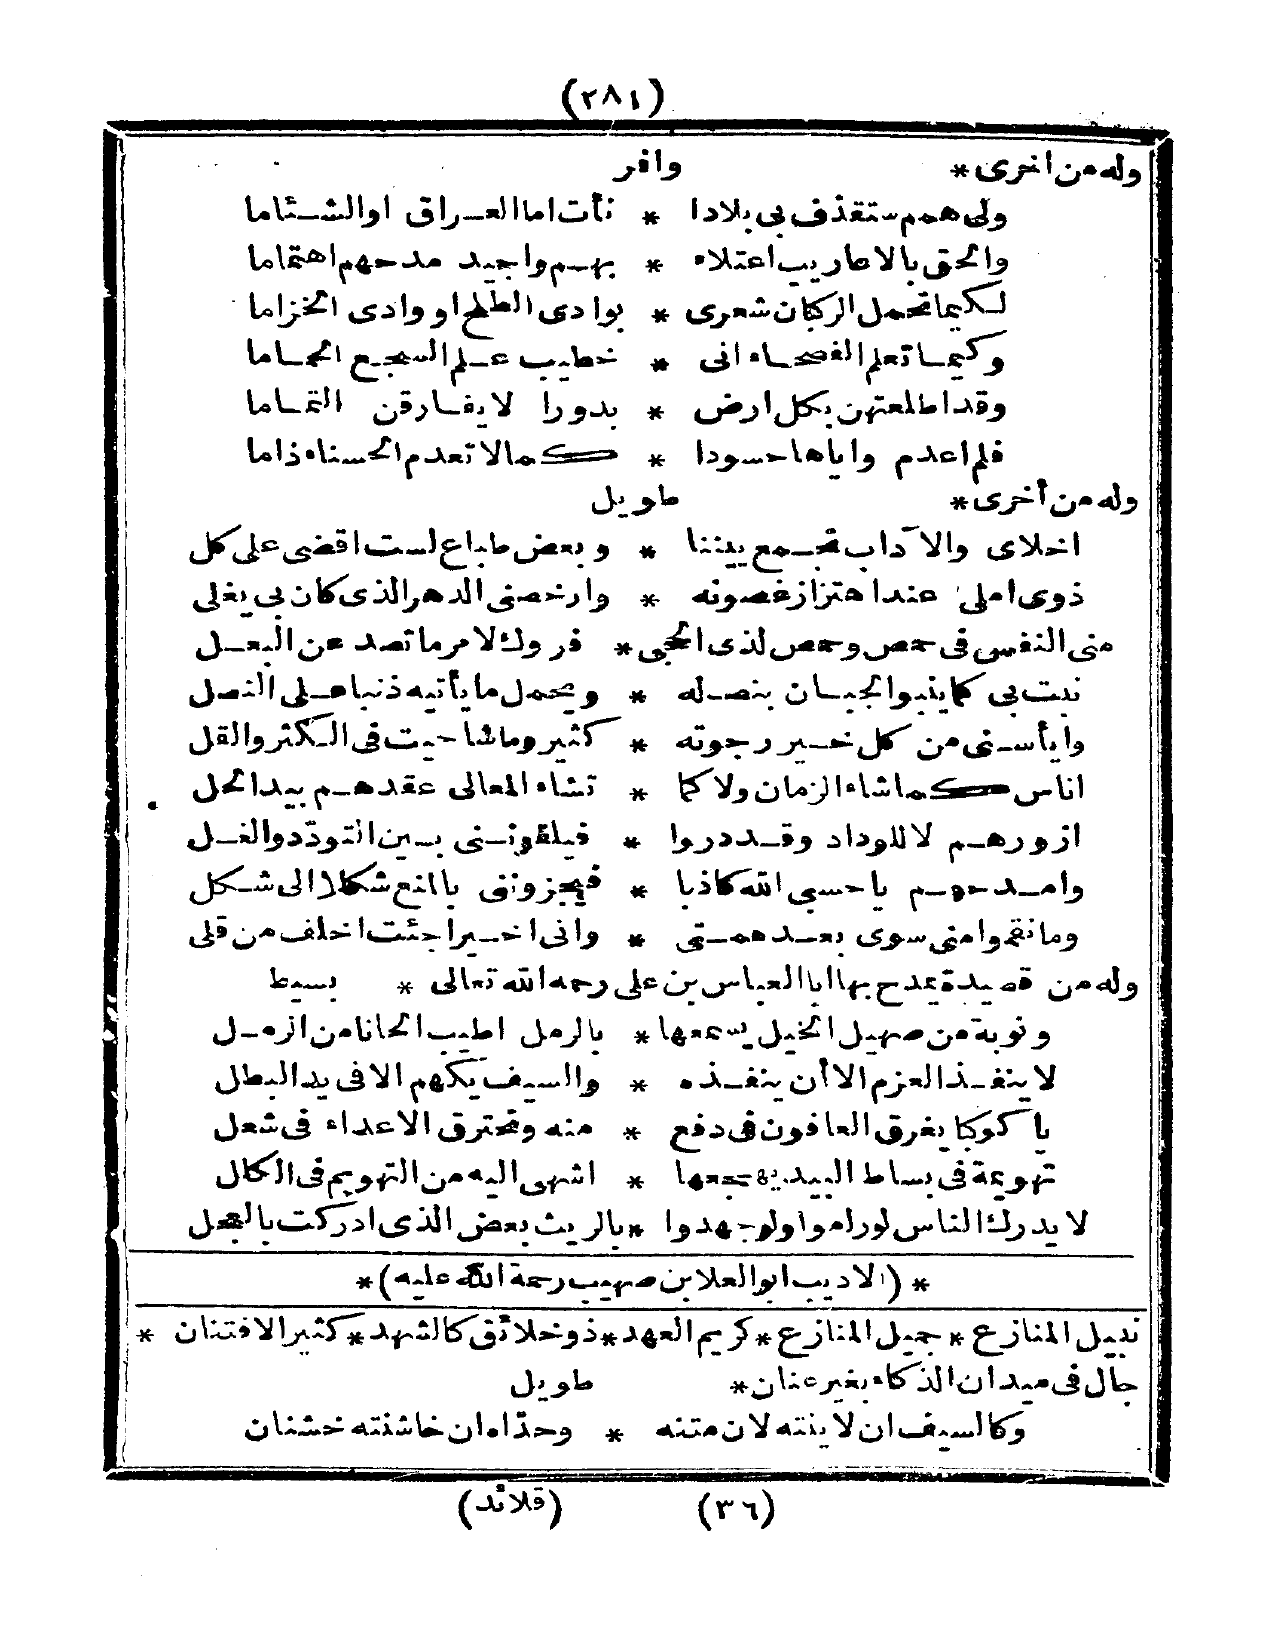 (٢٨١)
وله من اخرى * وافر
ولى همم ستقذف بى بلادا * نأت اما العراق او الشئاما
والحق بالاعاريب اعتلاء * بهم واجيد مدحهم اهتماما
لكيما تحمل الركبان شعرى * بوادى الطلح او وادى الخزاما
وكيما تعلم الفصحاء انى * خطيب علم السجع الحماما
وقد اطلعتهن بكل ارض * بدورا لا يفارقن التماما
فلم اعدم واياها حسودا * كمالا تعدم الحسناء ذاما
وله من أخرى * طويل
اخلاى والآداب تجمع بيننا * وبعض طباع لست اقضى على كل
ذوى املى عند اهتزاز غصونه * وارخصنى الدهر الذى كان بى يغلى
منى النفس فى حمص وحمص لذى الحجى * فروك لامر ما تصد عن البعل
نبت بى كما ينبو الجبان بنصله * ويحمل ما يأتيه ذنبا على النصل
وايأسنى من كل خير رجوته * كثير وما شاحيت فى الكثر والقل
اناس كماشاء الزمان ولا كما * تشاء المعالى عقدهم بيد الحل
ازورهم لا للوداد وقد دروا * فيلقوننى بين التودّد والغل
وامدحهم ياحسبى الله كاذبا * فيجزوننى بالمنع شكلا الى شكل
وما نقموا منى سوى بعد همتى * وانى اخيرا جئت اخلف من قلى
وله من قصيدة يمدح بها ابا العباس بن على رحمه الله تعالى * بسيط
ونوبة من صهيل الخيل يسمعها * بالرمل اطيب الحانا من الرمل
لا ينفذ العزم الا أن ينفذه * والسيف يكهم الا فى يد البطل
يا كوكبا يغرق العافون فى دفع * منه وتحترق الاعداء فى شعل
تهوعة فى بساط البيد يهجعها * اشهى اليه من التهويم فى الكلل
لا يدرك الناس لو راموا ولو جهدوا * بالريث بعض الذى ادركت بالعجل
* (الاديب ابو العلا بن صهيب رحمة الله عليه) *
نبيل المنازع * جميل المنازع * كريم العهد * ذو خلائق كالشهد * كثير الافتنان *
جال فى ميدان الذكاء بغير عنان * طويل
وكالسيف ان لاينته لان متنه * وحدّاه ان خاشنته خشنان
(٣٦) (قلائد)